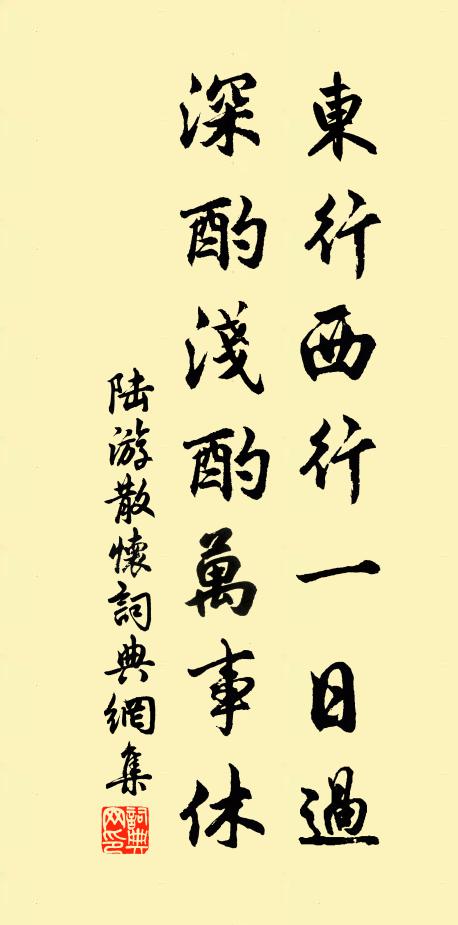 東行西行一日過
深酌淺酌萬事休
陆游散懷詞典網集
詞典网印